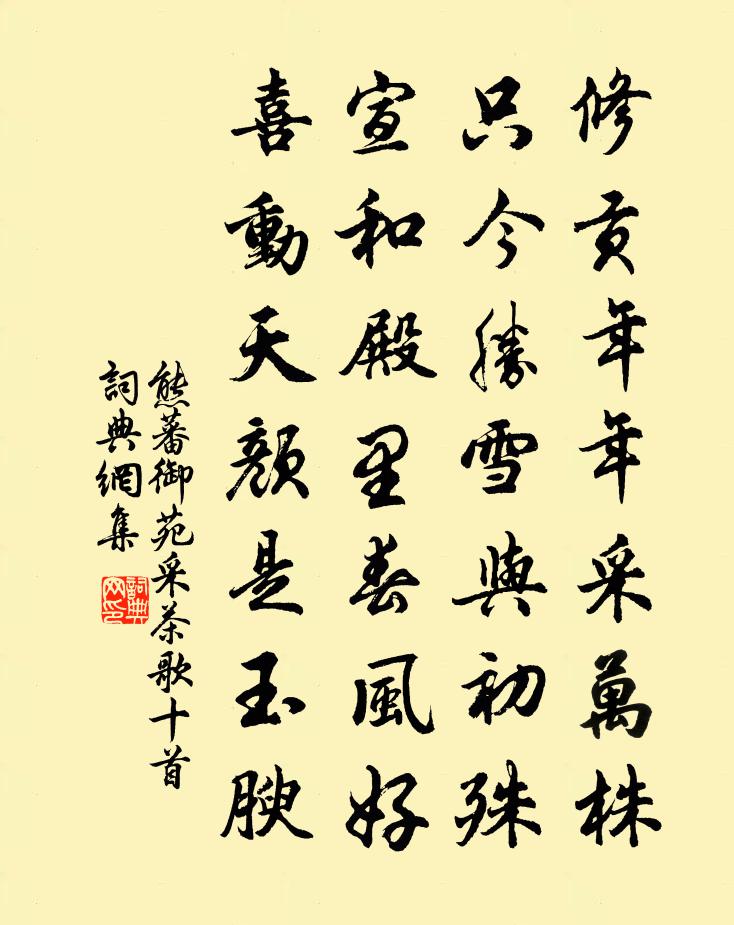 修貢年年采萬株
只今勝雪與初殊
宣和殿里春風好
喜動天顏是玉腴
熊蕃御苑采茶歌十首
詞典網集
詞典網印